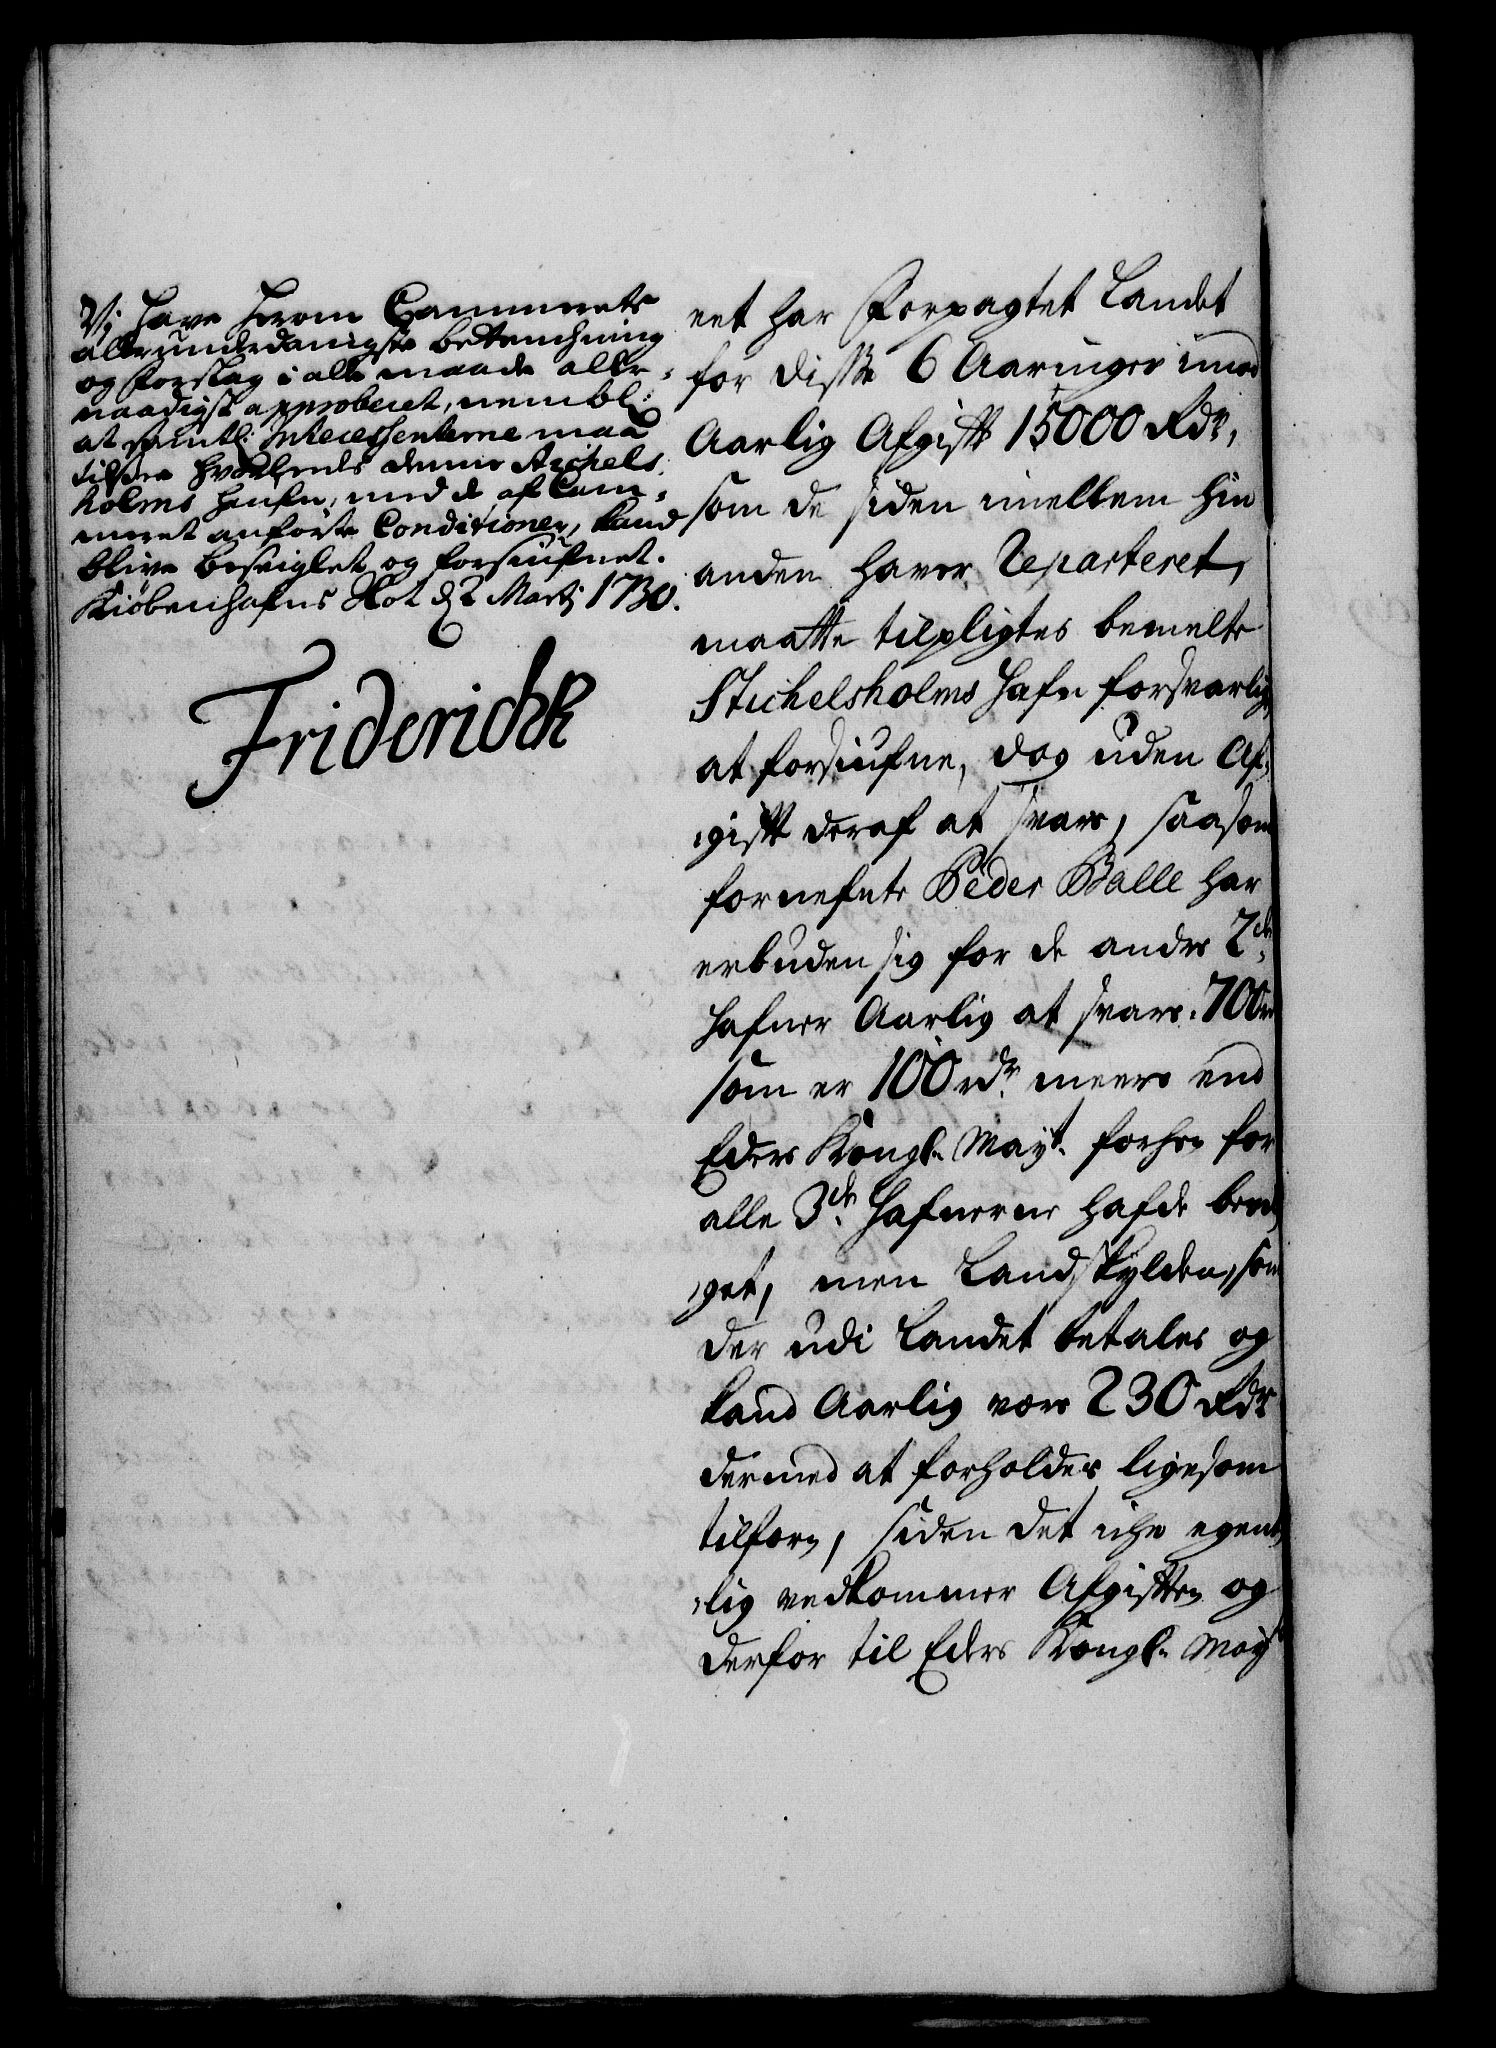 Vj have herom Cammerets
allerunderdanigste betenchning
og forslag i alle maade aller-
naadigst approberet, nembl:
at samtl: Interessenterne maa
tilsee hvorledes denne Stichels
holms hafn, med de af Cam-
meret anførte Conditioner, kand
blive beseiglet og forsiufnet.
Kiöbenhafns Slot d 2 Martj 1730.
Friderich R
eet har Forpagtet Landet
for disse 6 Aaringer imod
Aarlig Afgift 15000 Rdr,
som de siden imellem hin
anden haver Reparteret,
maatte tilpligtes bemelte
Stichelsholms hafn forsvarlig
at forsiufne, dog uden Af-
gift deraf at svare, saasom
fornefnte Peder Kalle har
erbuden sig for de andre 2de
hafner Aarlig at svare 700
som er 100 rdr meere end
Eders Kongl. Mayt. forhen for
alle 3de hafnerne hafde
get, men Landskylden, som
der udi Landet betales og
kand Aarlig være 230 Rdr
dermed at forholdes ligesom
tilforn, siden det iche egent
lig vedkommer Afgiften og
derfor til Eders Kongl. May